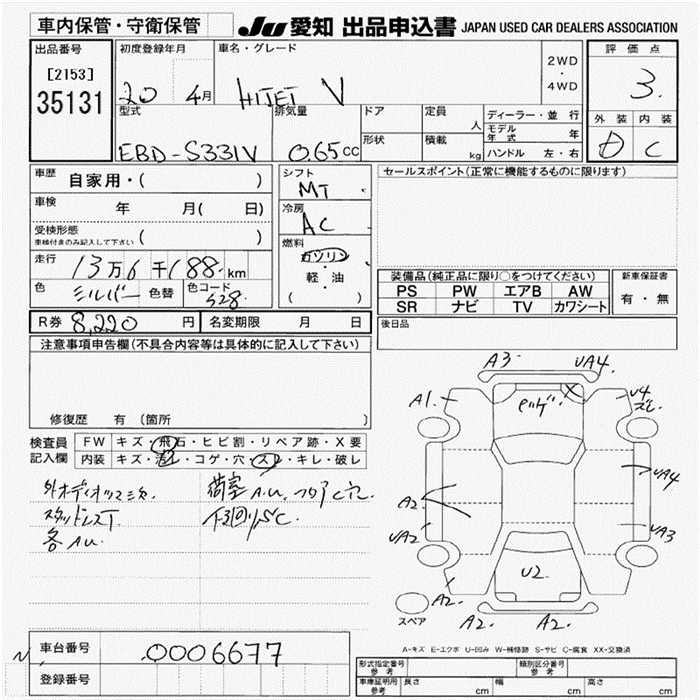 車内保管・守衛保管
JU 愛知 出品申込書 JAPAN USED CAR DEALERS ASSOCIATION
出品番号
[2153]
35131
初度登録年月
20 4月
車名・グレード
HIJET V
2WD
・
4WD
評価点
3.
外装 内装
D C
型式
EBD-S331V
排気量
0.65cc
ドア
形状
定員
人
積載
kg
ディーラー・並行
モデル年式 年
ハンドル 左・右
車歴 自家用・( )
車検 年 月( 日)
受検形態 ( )
車検付きのみ記入して下さい
走行 13万6千188km
色 シルバー 色替 色コード S28
シフト
MT
冷房
AC
燃料
ガソリン
・
軽・油
( )
セールスポイント(正常に機能するものに限ります)
装備品(純正品に限り○をつけてください)
PS PW エアB AW
SR ナビ TV カワシート
新車保証書
有・無
後日品
R券 8,220 円 名変期限 月 日
注意事項申告欄(不具合内容等は具体的に記入して下さい)
修復歴 有 (箇所 )
検査員記入欄
FW キズ・飛石・ヒビ割・リペア跡・X要
内装 キズ・汚レ・コゲ・穴・スレ・キレ・破レ
外オーディオッス三次
スタッドレスT
各AU.
荷室AU.
下廻りSC.
A3 UA4.
A1 U4
ズレ
X
A2
UA2
UA4
UA3
U2.
A2 A2 A2
スペア
A-キズ E-エクボ U-凹み W-補修跡 S-サビ C-腐食 XX-交換済
車台番号 0006677
登録番号
形式指定番号 参考
類別区分番号 参考
車庫証明用 参考 長さ cm 幅 cm 高さ cm